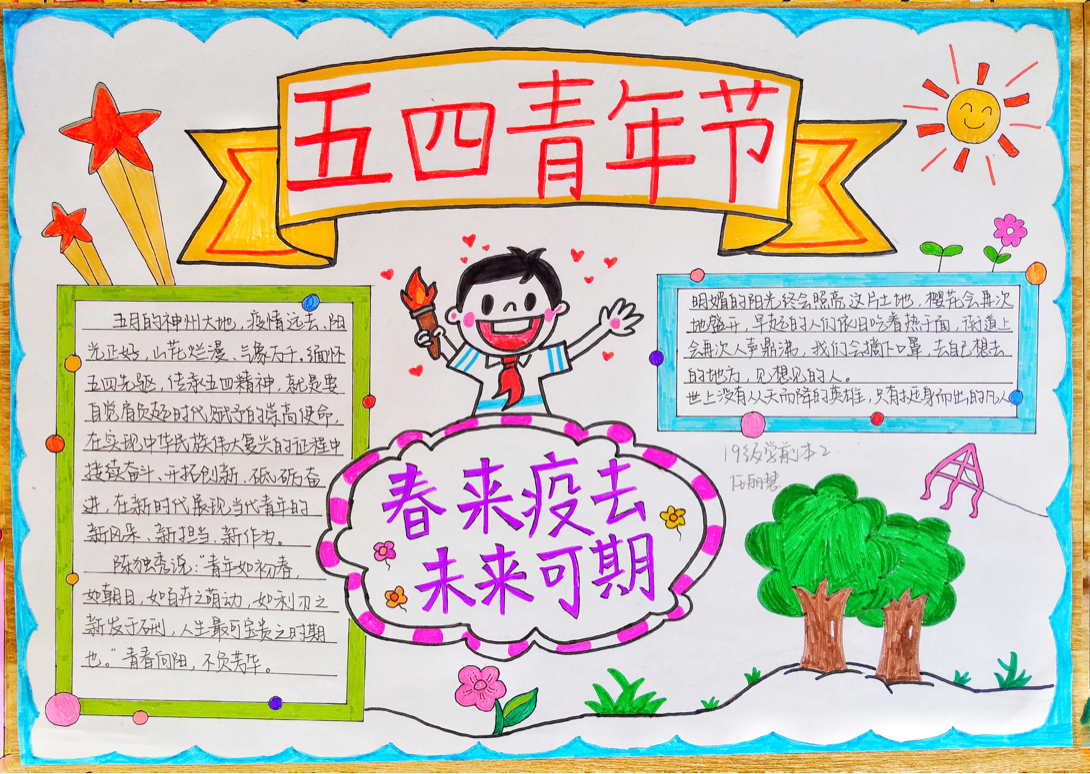 五四青年节
五月的神州大地，疫情远去、阳
光正好，山花烂漫、气象万千，缅怀
五四先驱，传承五四精神，就是要
自觉肩负起时代赋予的崇高使命，
在实现中华民族伟大复兴的征程中
接续奋斗、开拓创新、砥砺奋
进，在新时代展现当代青年的
新风采、新担当、新作为。
陈独秀说："青年如初春，
如朝日，如百卉之萌动，如利刃之
新发于硎，人生最可宝贵之时期
也。"青春向阳，不负芳华。
春来疫去
未来可期
明媚的阳光终会照亮这片土地，樱花会再次
地盛开，早起的人们依旧吃着热干面，街道上
会再次人声鼎沸，我们会摘下口罩，去自己想去
的地方，见想见的人。
世上没有从天而降的英雄，只有挺身而出的凡人
19级学前本2